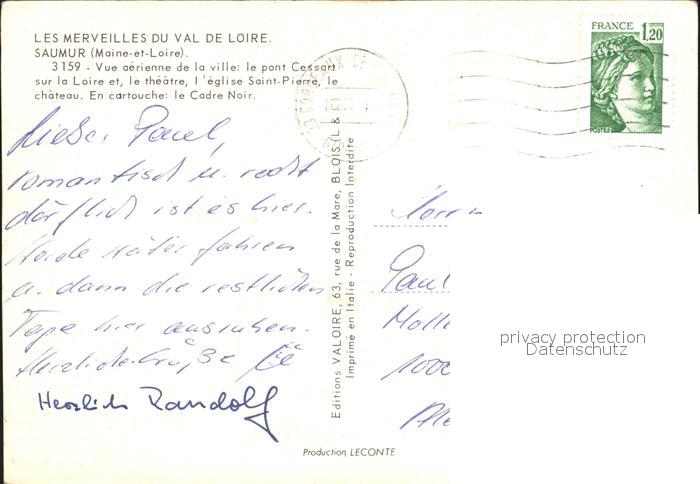 LES MERVEILLES DU VAL DE LOIRE.
SAUMUR (Maine-et-Loire).
3159 - Vue aérienne de la ville: le pont Cessart
sur la Loire et, le théâtre, l'église Saint-Pierre, le
château. En cartouche: le Cadre Noir.
FRANCE 1,20
POSTES
Lieber Paul,
romantisch u. recht
dörflich ist es hier.
später fahren
u. dann die restlichen
Tage hier ausruhen.
Herzliche Grüße
Herzlich Randolf
Editions VALOIRE, 63, rue de la Mare, BLOIS (L &
Imprimé en Italie - Reproduction Interdite
Herrn
Paul
1000
privacy protection
Datenschutz
Production LECONTE